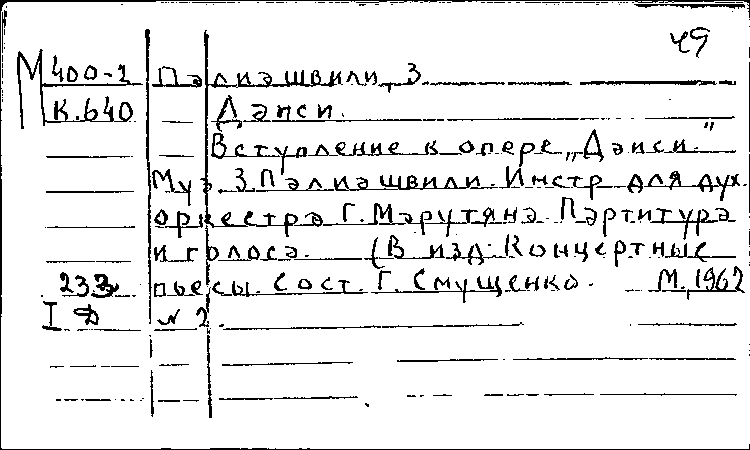 49
М 400-2 Палиашвили, З
К.640 Даиси.
Вступление к опере „Даиси."
Муз. З Палиашвили. Инстр для дух.
оркестра Г. Марутяна Партитура
и голоса. (В изд: Концертные
233 пьесы. Сост. Г. Смущенко. М., 1962
I Д № 2.